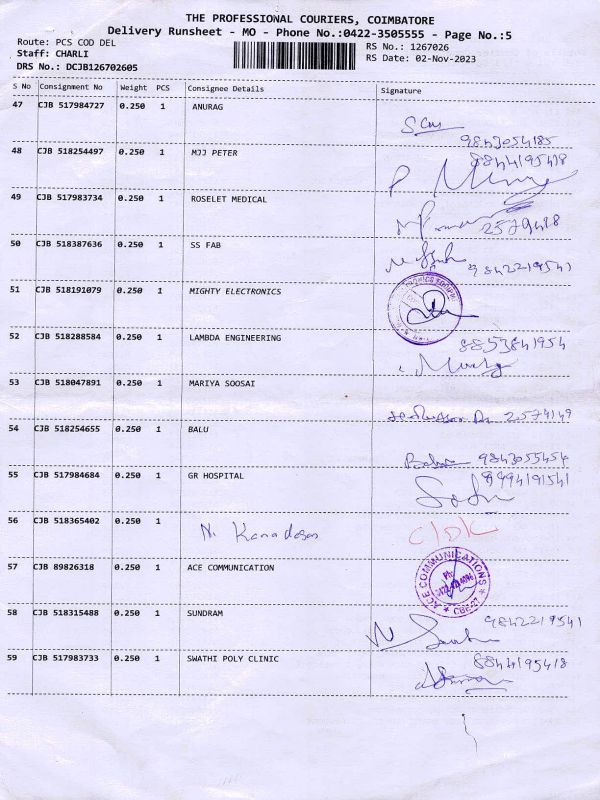 THE PROFESSIONAL COURIERS, COIMBATORE
Delivery Runsheet - MO - Phone No.:0422-3505555 - Page No.:5
Route: PCS COD DEL
RS No.: 1267026
Staff: CHARLI
RS Date: 02-Nov-2023
DRS No.: DCJB126702605
S No Consignment No Weight PCS Consignee Details Signature
47 CJB 517984727 0.250 1 ANURAG
9843054185
48 CJB 518254497 0.250 1 MJJ PETER 8844195418
49 CJB 517983734 0.250 1 ROSELET MEDICAL
2579418
50 CJB 518387636 0.250 1 SS FAB
9842219541
51 CJB 518191079 0.250 1 MIGHTY ELECTRONICS
52 CJB 518288584 0.250 1 LAMBDA ENGINEERING 8853841954
53 CJB 518047891 0.250 1 MARIYA SOOSAI
2574149
54 CJB 518254655 0.250 1 BALU
9843055454
55 CJB 517984684 0.250 1 GR HOSPITAL 8994191541
56 CJB 518365402 0.250 1 N. Kanadasan
57 CJB 89826318 0.250 1 ACE COMMUNICATION ACE COMMUNICATIONS
58 CJB 518315488 0.250 1 SUNDRAM 9842219541
59 CJB 517983733 0.250 1 SWATHI POLY CLINIC 8844195418